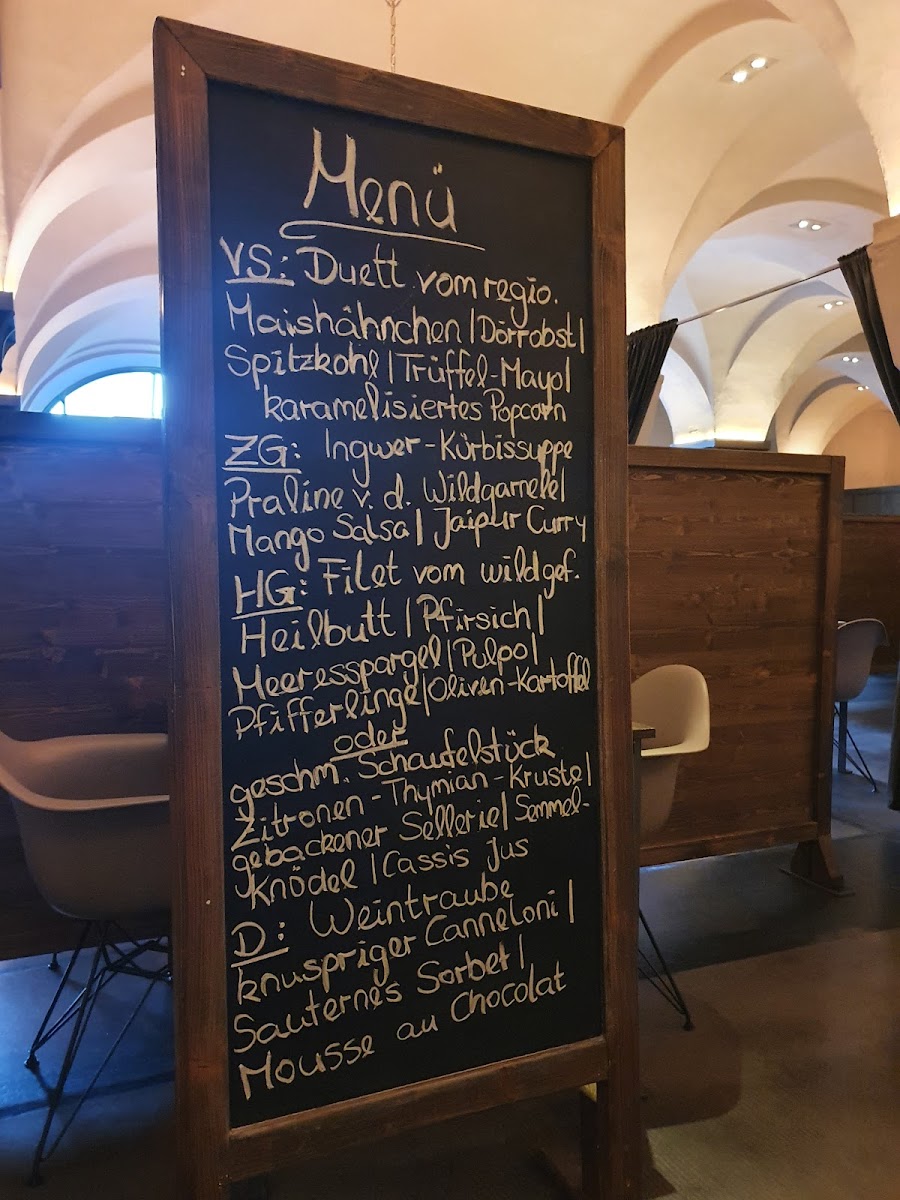 Menü
VS: Duett vom regio.
Maishähnchen | Dörrobst |
Spitzkohl | Trüffel-Mayo |
karamelisiertes Popcorn
ZG: Ingwer-Kürbissuppe
Praline v. d. Wildgarnele |
Mango Salsa | Jaipur Curry
HG: Filet vom wildgef.
Heilbutt | Pfirsich |
Meeresspargel | Pulpo |
Pfifferlinge | Oliven-Kartoffel
oder
geschm. Schaufelstück
Zitronen-Thymian-Kruste |
gebackener Sellerie | Semmel-
Knödel | Cassis Jus
D: Weintraube
knuspriger Canneloni |
Sauternes Sorbet |
Mousse au Chocolat